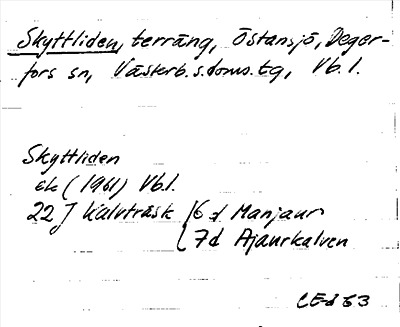 Skyttliden, terräng, Östansjö, Deger-
fors sn, Västerb. s. doms. tg, Vb. l.
Skyttliden
ek (1961) Vb.l.
22 J Kalvträsk 6 d Manjaur
7d Ajaurkalven
CEd 63